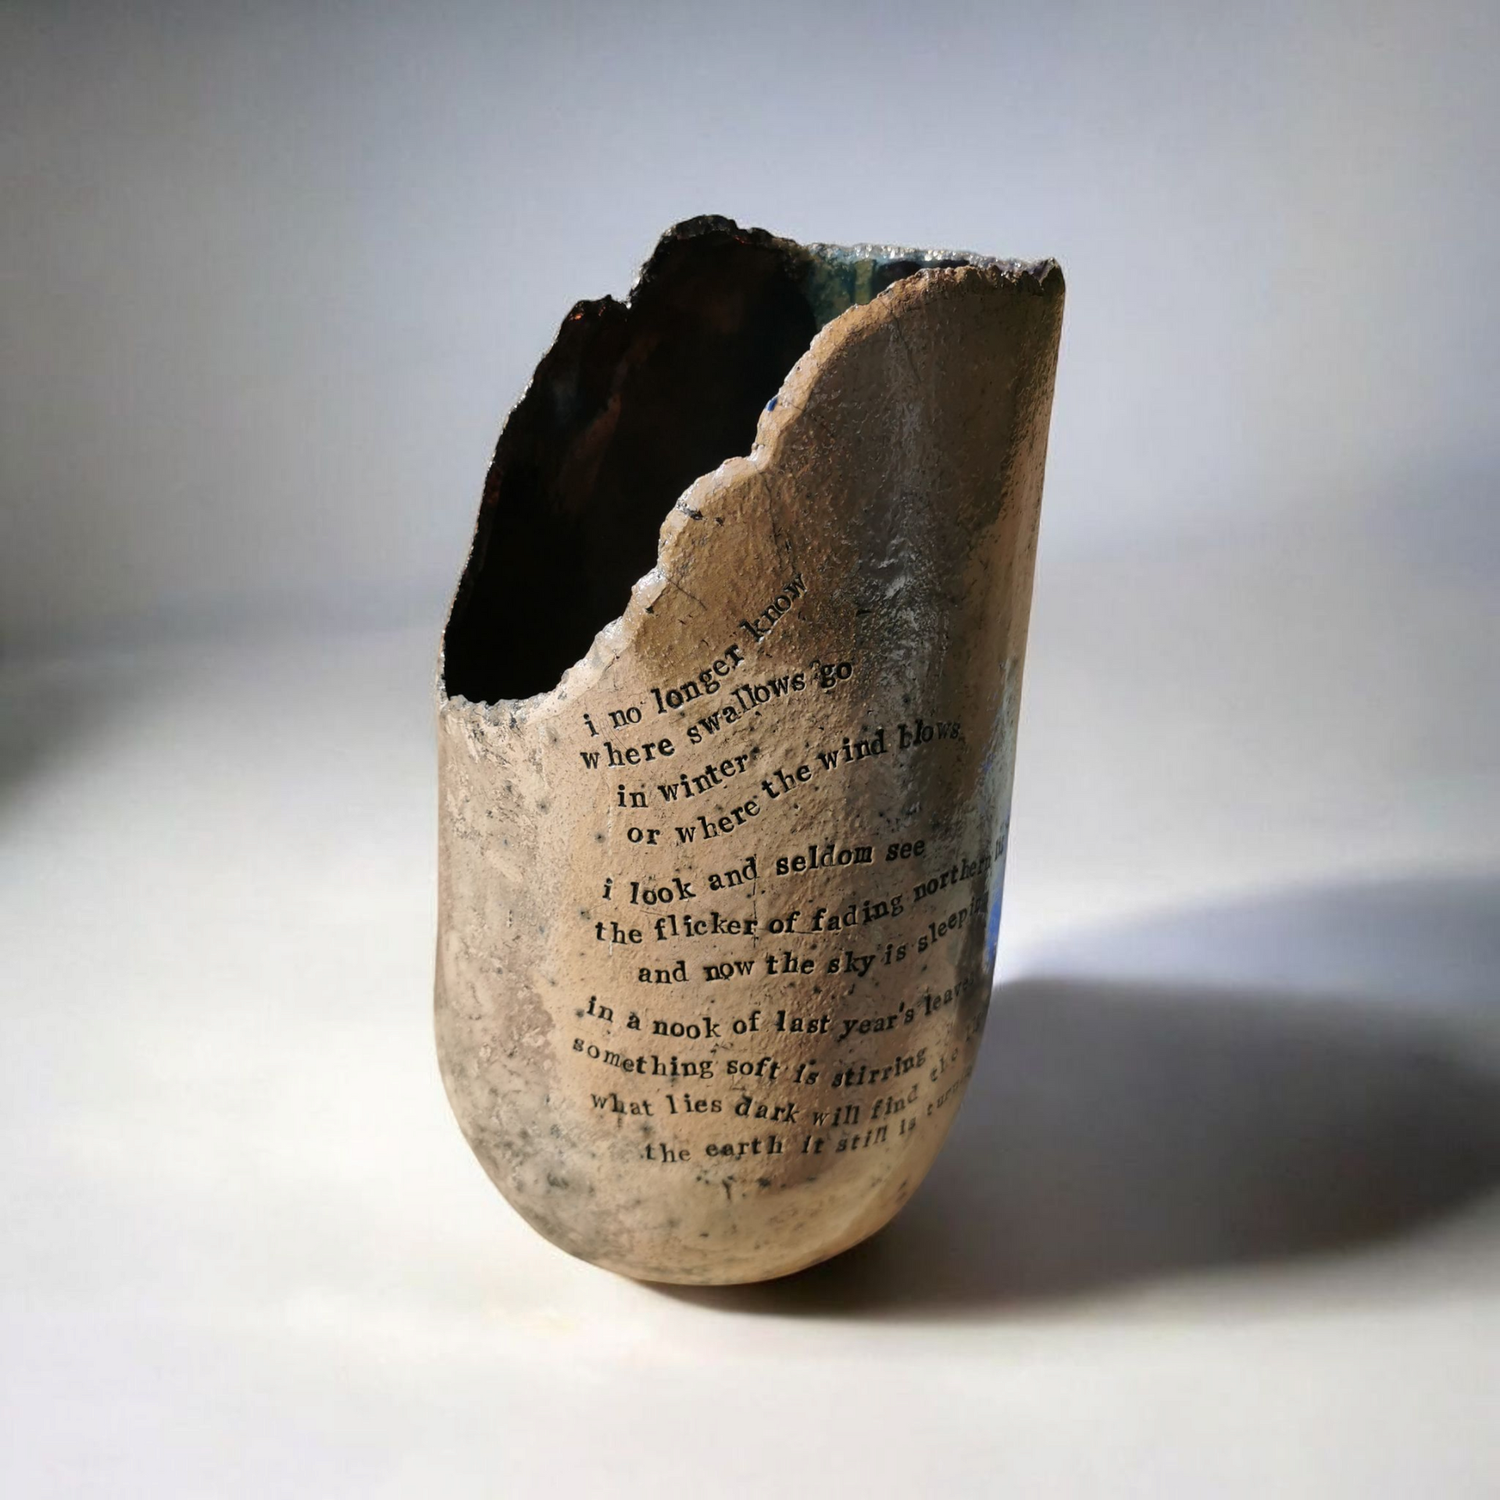 i no longer know
where swallows go
in winter
or where the wind blows
i look and seldom see
the flicker of fading northern
and now the sky is sleeping
in a nook of last year's leaves
something soft is stirring the
what lies dark will find the
the earth it still is turning